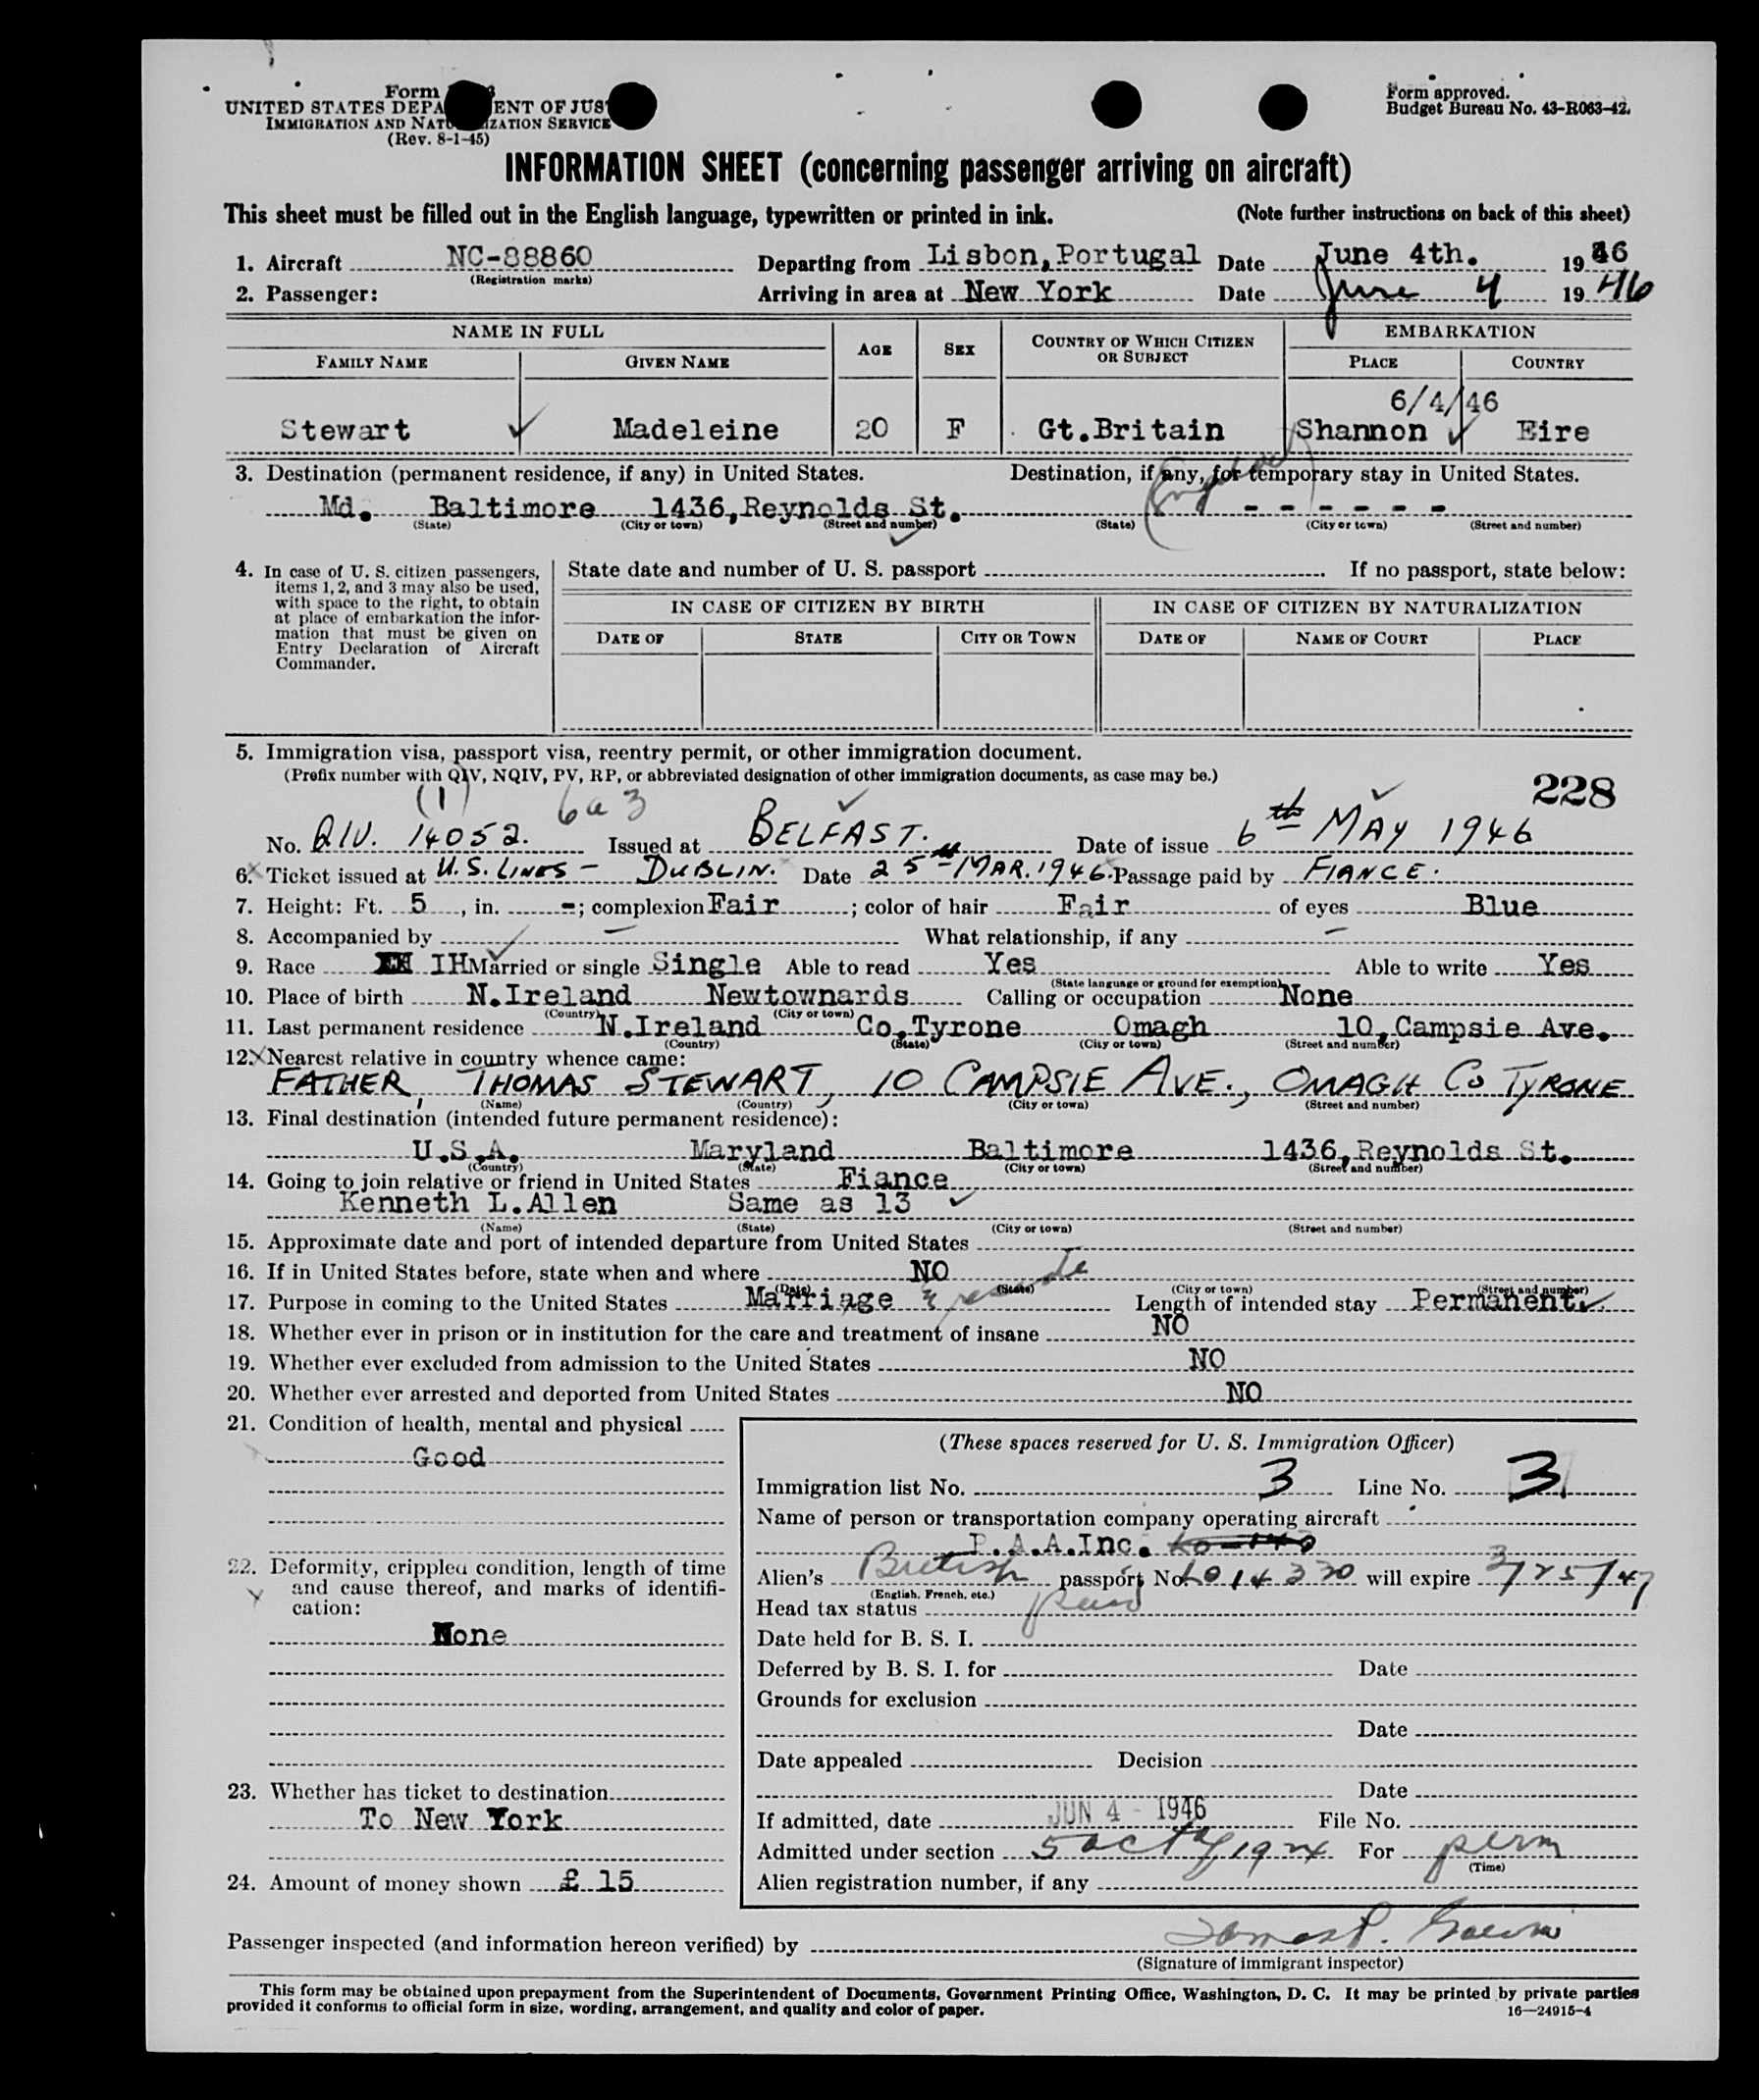 Form
UNITED STATES DEPA ENT OF JUS
IMMIGRATION AND NATU IZATION SERVICE
(Rev. 8-1-45)
Form approved.
Budget Bureau No. 43-R063-42.
INFORMATION SHEET (concerning passenger arriving on aircraft)
This sheet must be filled out in the English language, typewritten or printed in ink. (Note further instructions on back of this sheet)
1. Aircraft NC-88860 Departing from Lisbon, Portugal Date June 4th. 1946
(Registration marks)
2. Passenger: Arriving in area at New York Date June 4 1946
NAME IN FULL AGE SEX COUNTRY OF WHICH CITIZEN OR SUBJECT EMBARKATION
FAMILY NAME GIVEN NAME PLACE COUNTRY
6/4/46
Stewart Madeleine 20 F Gt.Britain Shannon Eire
3. Destination (permanent residence, if any) in United States. Destination, if any, for temporary stay in United States.
Md. Baltimore 1436,Reynolds St. - - - - - -
(State) (City or town) (Street and number) (State) (City or town) (Street and number)
4. In case of U. S. citizen passengers, items 1, 2, and 3 may also be used, with space to the right, to obtain at place of embarkation the information that must be given on Entry Declaration of Aircraft Commander.
State date and number of U. S. passport If no passport, state below:
IN CASE OF CITIZEN BY BIRTH IN CASE OF CITIZEN BY NATURALIZATION
DATE OF STATE CITY OR TOWN DATE OF NAME OF COURT PLACE
5. Immigration visa, passport visa, reentry permit, or other immigration document.
(Prefix number with QIV, NQIV, PV, RP, or abbreviated designation of other immigration documents, as case may be.)
228
(1) 6a3
No. QIV. 14052. Issued at BELFAST. Date of issue 6th MAY 1946
6. Ticket issued at U.S. LINES - DUBLIN. Date 25th MAR. 1946. Passage paid by FIANCE.
7. Height: Ft. 5, in. -; complexion Fair; color of hair Fair of eyes Blue
8. Accompanied by – What relationship, if any –
9. Race IH Married or single Single Able to read Yes Able to write Yes
(State language or ground for exemption)
10. Place of birth N.Ireland Newtownards Calling or occupation None
(Country) (City or town)
11. Last permanent residence N.Ireland Co.Tyrone Omagh 10,Campsie Ave.
(Country) (State) (City or town) (Street and number)
12. Nearest relative in country whence came:
FATHER, THOMAS STEWART, 10 CAMPSIE AVE., OMAGH CO TYRONE
(Name) (Country) (City or town) (Street and number)
13. Final destination (intended future permanent residence):
U.S.A. Maryland Baltimore 1436,Reynolds St.
(Country) (State) (City or town) (Street and number)
14. Going to join relative or friend in United States Fiance
Kenneth L.Allen Same as 13
(Name) (State) (City or town) (Street and number)
15. Approximate date and port of intended departure from United States
16. If in United States before, state when and where NO
(Date) (State) (City or town) (Street and number)
17. Purpose in coming to the United States Marriage & reside Length of intended stay Permanent
18. Whether ever in prison or in institution for the care and treatment of insane NO
19. Whether ever excluded from admission to the United States NO
20. Whether ever arrested and deported from United States NO
21. Condition of health, mental and physical
Good
22. Deformity, crippled condition, length of time and cause thereof, and marks of identification:
None
23. Whether has ticket to destination
To New York
24. Amount of money shown £ 15
(These spaces reserved for U. S. Immigration Officer)
Immigration list No. 3 Line No. 3
Name of person or transportation company operating aircraft
P.A.A.Inc.
Alien's British passport No. LO 14330 will expire 3/25/47
(English, French, etc.)
Head tax status Paid
Date held for B. S. I.
Deferred by B. S. I. for Date
Grounds for exclusion
Date
Date appealed Decision
Date
If admitted, date JUN 4 - 1946 File No.
Admitted under section 5 act of 1924 For perm
(Time)
Alien registration number, if any
Passenger inspected (and information hereon verified) by
(Signature of immigrant inspector)
This form may be obtained upon prepayment from the Superintendent of Documents, Government Printing Office, Washington, D. C. It may be printed by private parties
provided it conforms to official form in size, wording, arrangement, and quality and color of paper.
16—24915-4